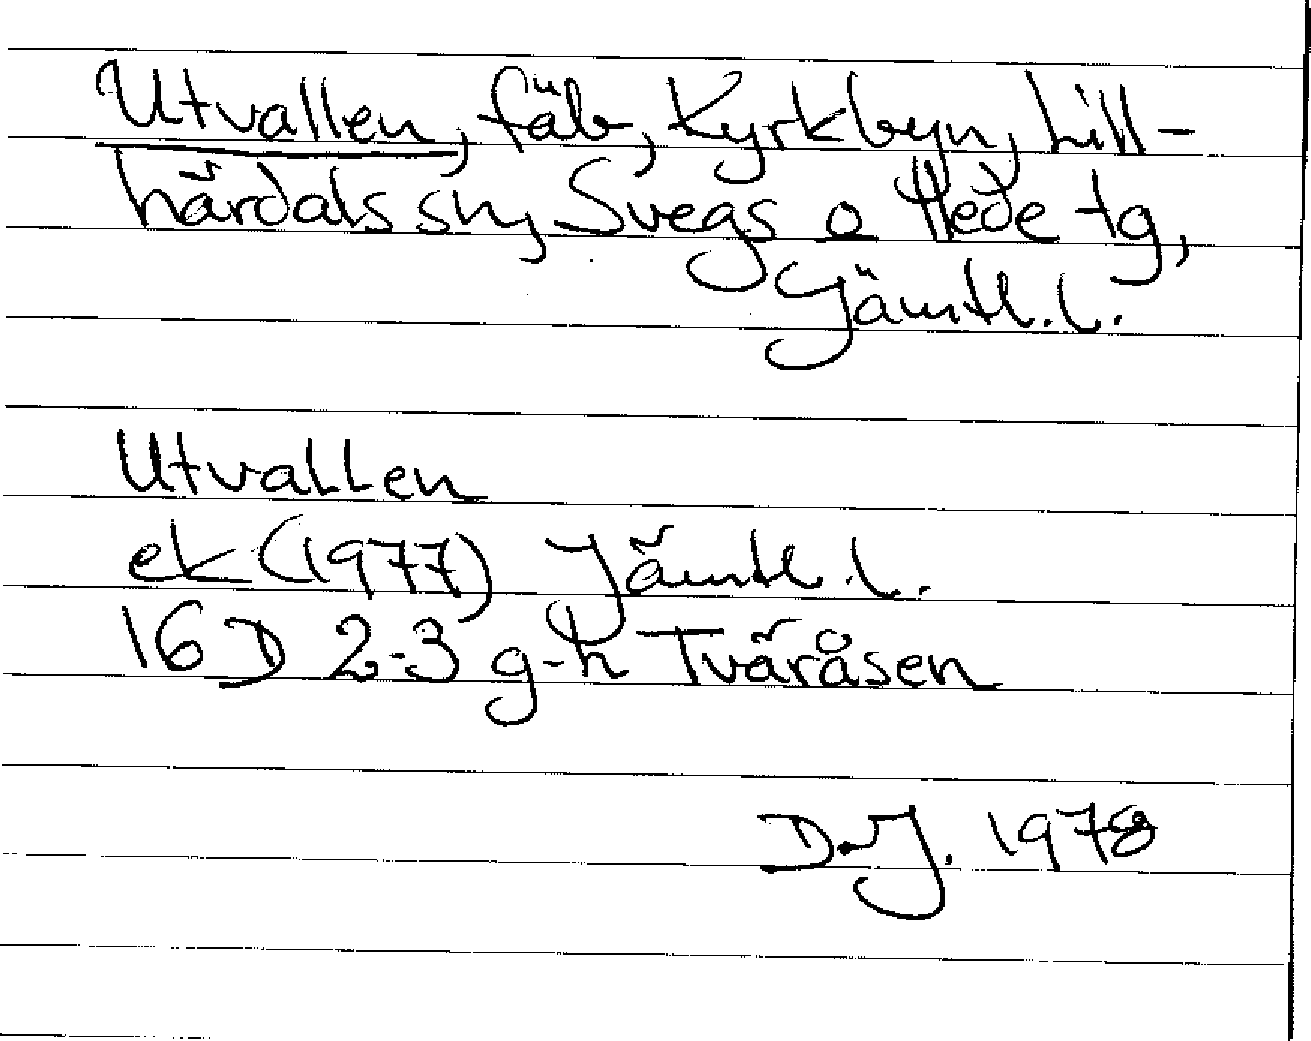 Utvallen, fäb, Kyrkbyn, Lill-
härdals sn, Svegs o Hede tg,
Jämtl. l.
Utvallen
ek (1977) Jämtl. l.
16 D 2-3 g-h Tväråsen
D.J. 1978